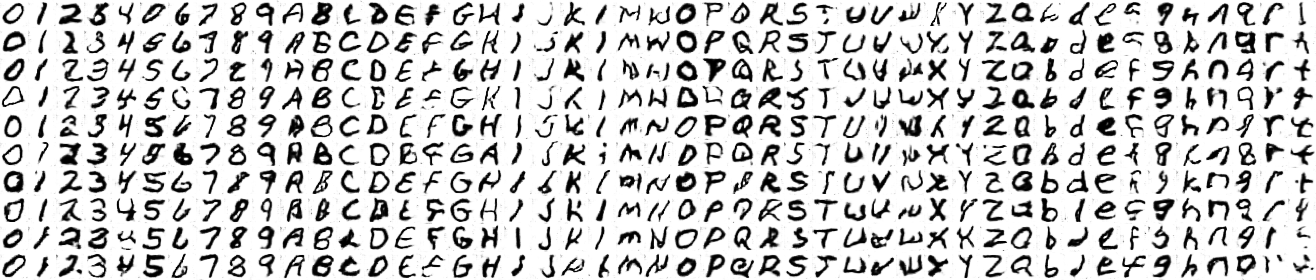 0 1 2 3 4 5 6 7 8 9 A B C D E F G H I J K l M N O P Q R S T U V W X Y Z a b d e f g h n q r t
0 1 2 3 4 5 6 7 8 9 A B C D E F G H I J K l M N O P Q R S T U V W X Y Z a b d e f g h n q r t
0 1 2 3 4 5 6 7 8 9 A B C D E F G H I J K l M N O P Q R S T U V W X Y Z a b d e f g h n q r t
0 1 2 3 4 5 6 7 8 9 A B C D E F G K I J K l M N O P Q R S T U V W X Y Z a b d e f g h n q r t
0 1 2 3 4 5 6 7 8 9 A B C D E F G H I J K l M N O P Q R S T U V W X Y Z a b d e f g h n q r t
0 1 2 3 4 5 6 7 8 9 A B C D E F G H I J K i M N O P Q R S T U V W X Y Z a b d e f g h n q r t
0 1 2 3 4 5 6 7 8 9 A B C D E F G H I J K l M N O P Q R S T U V W X Y Z a b d e f g h n q r t
0 1 2 3 4 5 6 7 8 9 A B C D E F G H I J K l M N O P Q R S T U V W X Y Z a b d e f g h n q r t
0 1 2 3 4 5 6 7 8 9 A B C D E F G H I J K l M N O P Q R S T U V W X Y Z a b d e f g h n q r t
0 1 2 3 4 5 6 7 8 9 A B C D E F G H I J K l M N O P Q R S T U V W X Y Z a b d e f g h n q r t